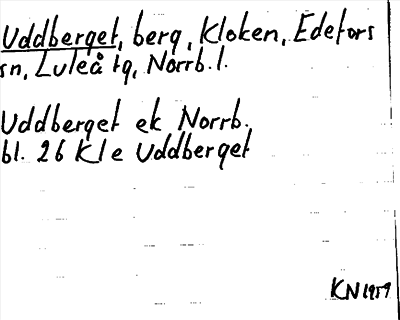 Uddberget, berg, Kloken, Edefors
sn, Luleå tg, Norrb.l.
Uddberget ek Norrb.
bl. 26 Kl e Uddberget
KN 1959